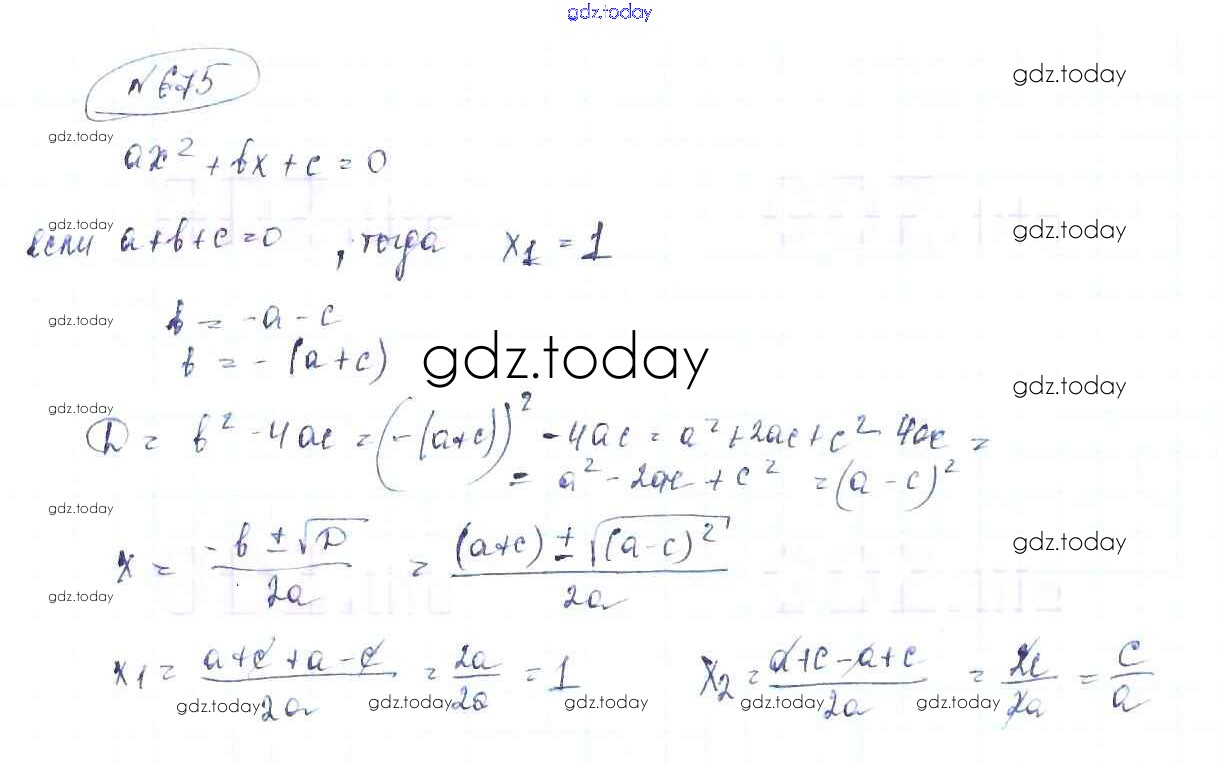 gdz.today
№ 675
gdz.today
gdz.today
ax² + bx + c = 0
gdz.today
если a + b + c = 0, тогда x₁ = 1
gdz.today
gdz.today
b = -a - c
b = -(a + c)
gdz.today
gdz.today
gdz.today
D = b² - 4ac = (-(a+c))² - 4ac = a² + 2ac + c² - 4ac =
= a² - 2ac + c² = (a - c)²
gdz.today
x = (-b ± √D)/(2a) = ((a+c) ± √((a-c)²))/(2a)
gdz.today
gdz.today
x₁ = (a+c+a-c)/(2a) = 2a/2a = 1 x₂ = (a+c-a+c)/(2a) = 2c/2a = c/a
gdz.today gdz.today gdz.today gdz.today gdz.today